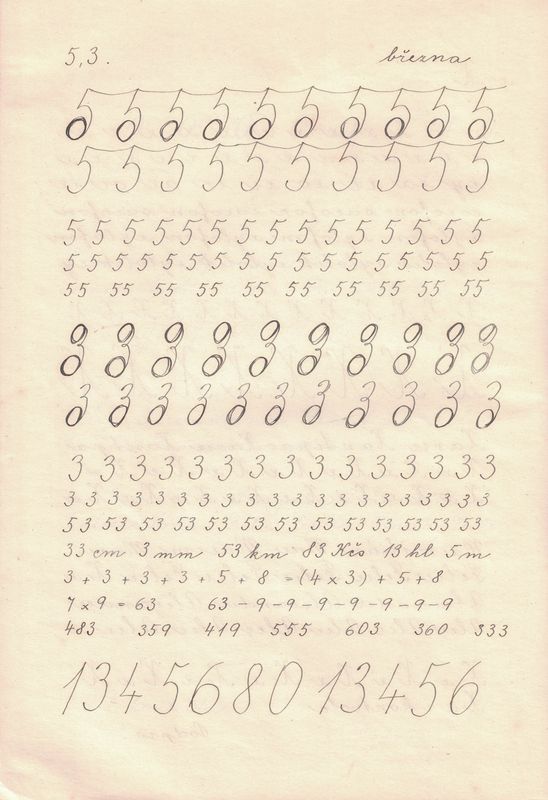 5,3. března
5 5 5 5 5 5 5 5 5 5
5 5 5 5 5 5 5 5 5 5
5 5 5 5 5 5 5 5 5 5 5 5 5 5 5
5 5 5 5 5 5 5 5 5 5 5 5 5 5 5 5 5
55 55 55 55 55 55 55 55 55 55
3 3 3 3 3 3 3 3 3 3
3 3 3 3 3 3 3 3 3 3 3
3 3 3 3 3 3 3 3 3 3 3 3 3 3 3 3
3 3 3 3 3 3 3 3 3 3 3 3 3 3 3 3 3 3 3 3
53 53 53 53 53 53 53 53 53 53 53 53 53
33 cm 3 mm 53 km 83 Kčs 13 hl 5 m
3 + 3 + 3 + 3 + 5 + 8 = (4 x 3) + 5 + 8
7 x 9 = 63 63 - 9 - 9 - 9 - 9 - 9 - 9 - 9
483 359 419 555 603 360 333
13456 80 13456